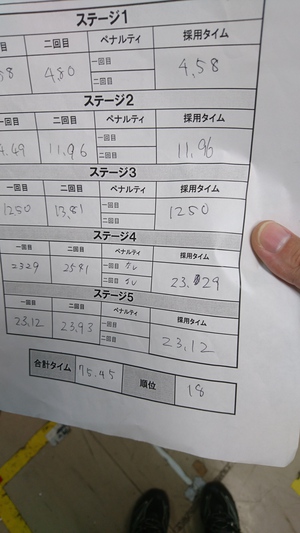 ステージ1
回目 二回目 ペナルティ 採用タイム
58 4,80 一回目 4,58
二回目
ステージ2
一回目 二回目 ペナルティ 採用タイム
.49 11.96 一回目 11,96
二回目
ステージ3
一回目 二回目 ペナルティ 採用タイム
1250 13,81 一回目 1250
二回目
ステージ4
一回目 二回目 ペナルティ 採用タイム
2329 2581 一回目 23.29
二回目
ステージ5
一回目 二回目 ペナルティ 採用タイム
23.12 23,93 一回目 23,12
二回目
合計タイム 75.45 順位 18